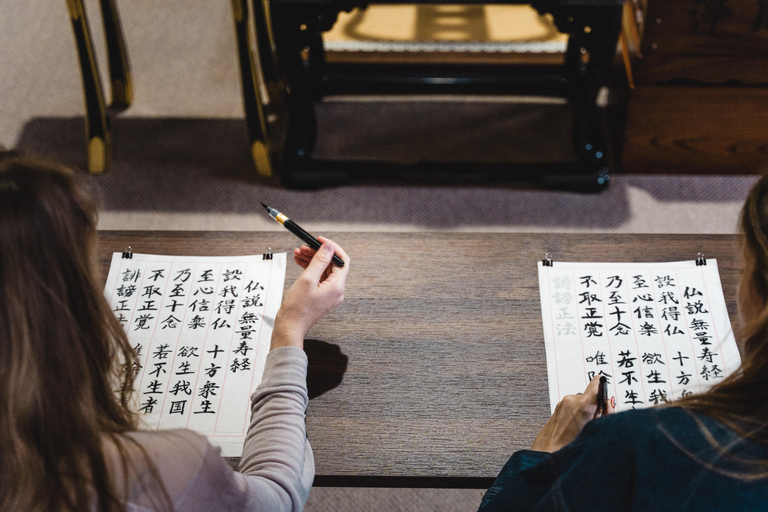 仏説無量寿経
設我得仏 十方衆生
至心信楽 欲生我国
乃至十念 若不生者
不取正覚 唯除
誹謗正
仏説無量寿経
設我得仏 十方
至心信楽 欲生我
乃至十念 若不生
不取正覚 唯除
誹謗正法